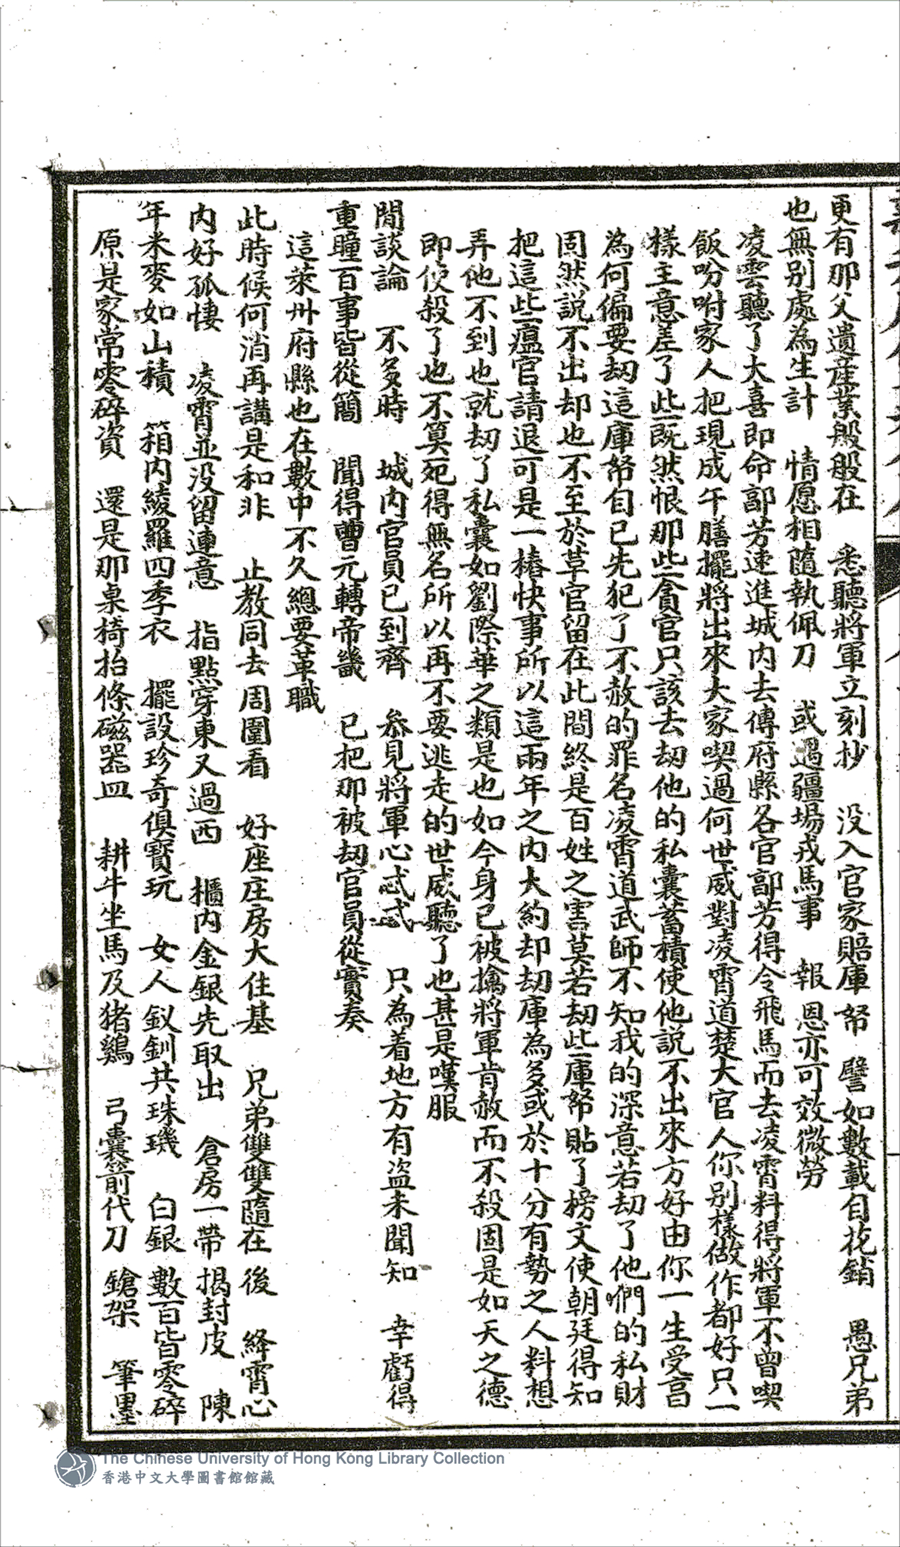 更有那父遺産業般般在　悉聽將軍立刻抄　没入官家賠庫帑　譬如數載自花銷　愚兄弟
也無别處為生計　情愿相隨執佩刀　或遇疆場戎馬事　報恩亦可效微勞
凌雲聽了大喜即命部芳速進城内去傳府縣各官部芳得令飛馬而去凌霄料得將軍不曾喫
飯吩咐家人把現成午膳擺將出來大家喫過何世威對凌霄道楚大官人你别樣做作都好只一
樣主意差了些既然恨那些貪官只該去刼他的私囊蓄積使他説不出來方好由你一生受享
為何偏要刼這庫帑自已先犯了不赦的罪名凌霄道武師不知我的深意若刼了他們的私財
固然説不出却也不至於革官留在此間終是百姓之害莫若刼些庫帑貼了榜文使朝廷得知
把這些瘟官請退可是一樁快事所以這兩年之内大約却刼庫為多或於十分有勢之人料想
弄他不到也就刼了私囊如劉際華之類是也如今身已被擒將軍肯赦而不殺固是如天之德
即使殺了也不算死得無名所以再不要逃走的世威聽了也甚是嘆服
閒談論　不多時　城内官員已到齊　叅見將軍心忒忒　只為着地方有盜未聞知　幸虧得
重瞳百事皆從簡　聞得曹元轉帝畿　已把那被刼官員從實奏
這萊州府縣也在數中不久總要革職
此時候何消再講是和非　止教同去周圍看　好座庄房大住基　兄弟雙雙隨在後　絳霄心
内好孤悽　凌霄並没留連意　指點穿東又過西　櫃内金銀先取出　倉房一帶揭封皮　陳
年米麥如山積　箱内綾羅四季衣　擺設珍奇俱寳玩　女人釵釧共珠璣　白銀數百皆零碎
原是家常零碎資　還是那桌椅抬條磁器皿　耕牛坐馬及猪鷄　弓囊箭代刀鎗架　筆墨
The Chinese University of Hong Kong Library Collection
香港中文大學圖書館館藏